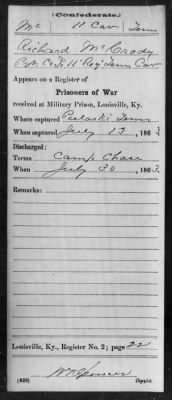 (Confederate.)
Mc 11 Cav Tenn
Richard McCrody
Co. 11 Reg' Tenn Cav
Appears on a Register of
Prisoners of War
received at Military Prison, Louisville, Ky.
Where captured Pulaski Tenn
When captured July 13, 1863
Discharged:
Terms Camp Chase
When July 30, 1863.
Remarks:
Louisville, Ky., Register No. 2; page 22
(639) Copyist.